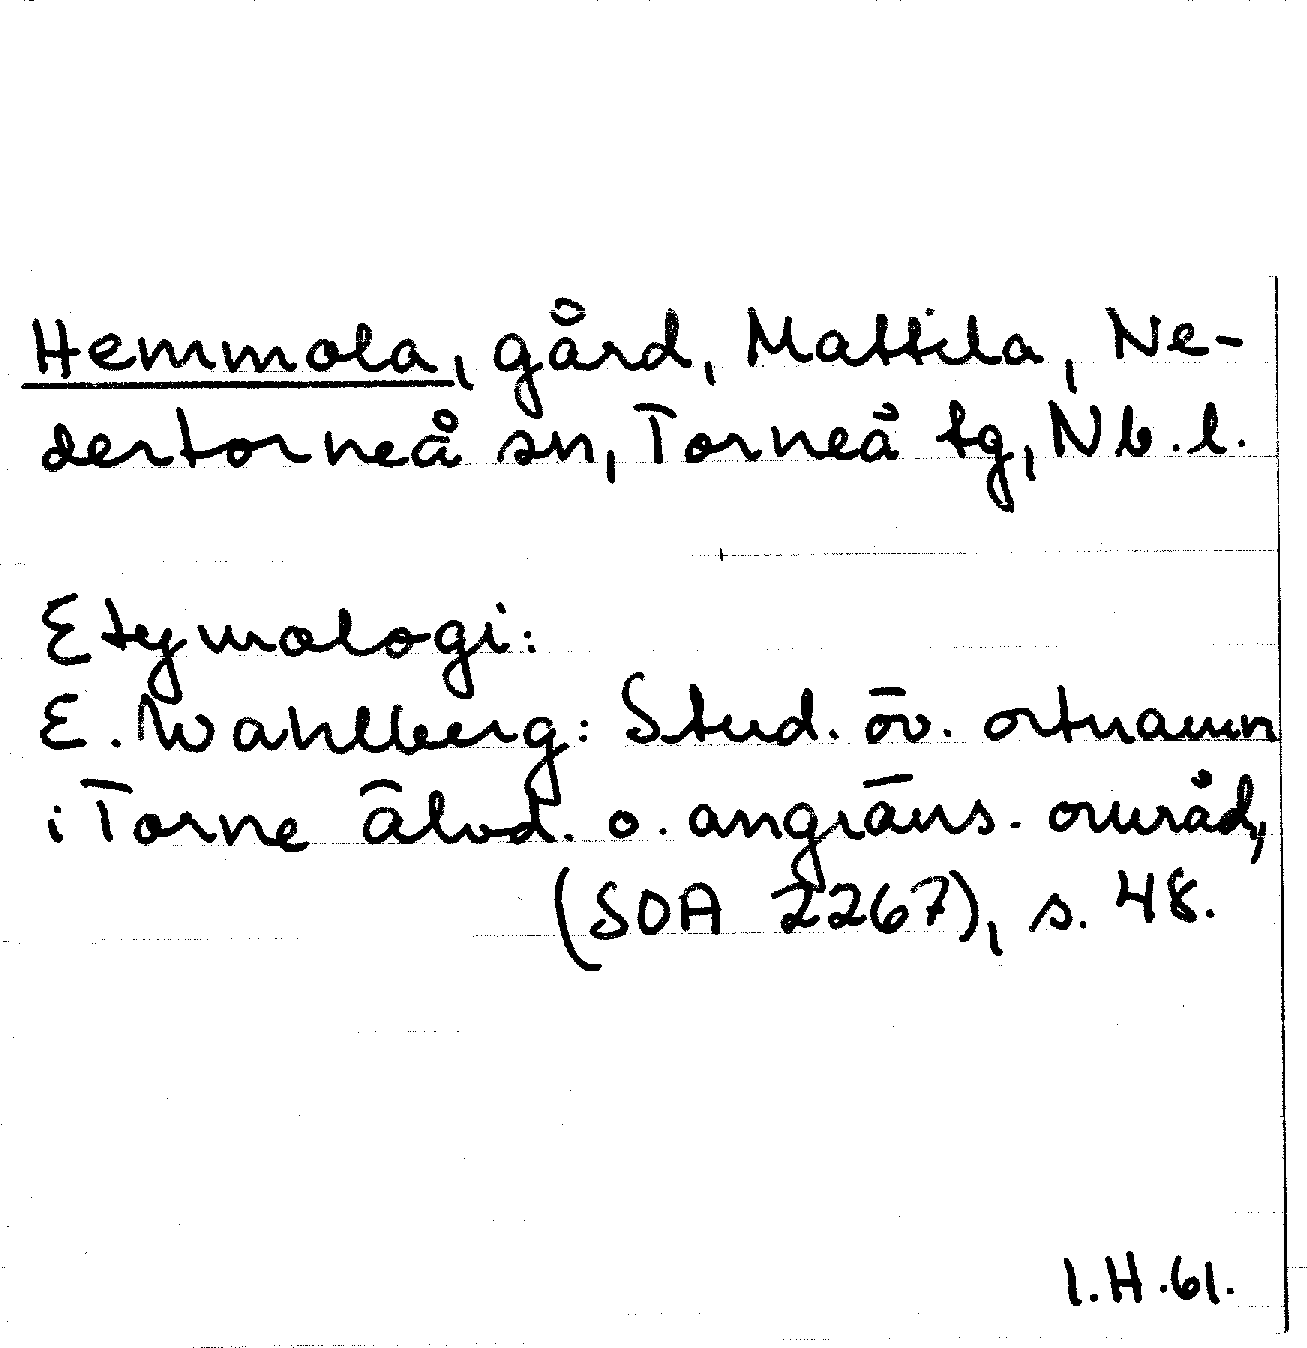 Hemmola, gård, Mattila, Ne-
dertorneå sn, Torneå tg, Nb.l.
Etymologi:
E. Wahlberg: Stud. öv. ortnamn
i Torne älvd. o. angräns. områd,
(SOA 2267), s. 48.
I.H.61.